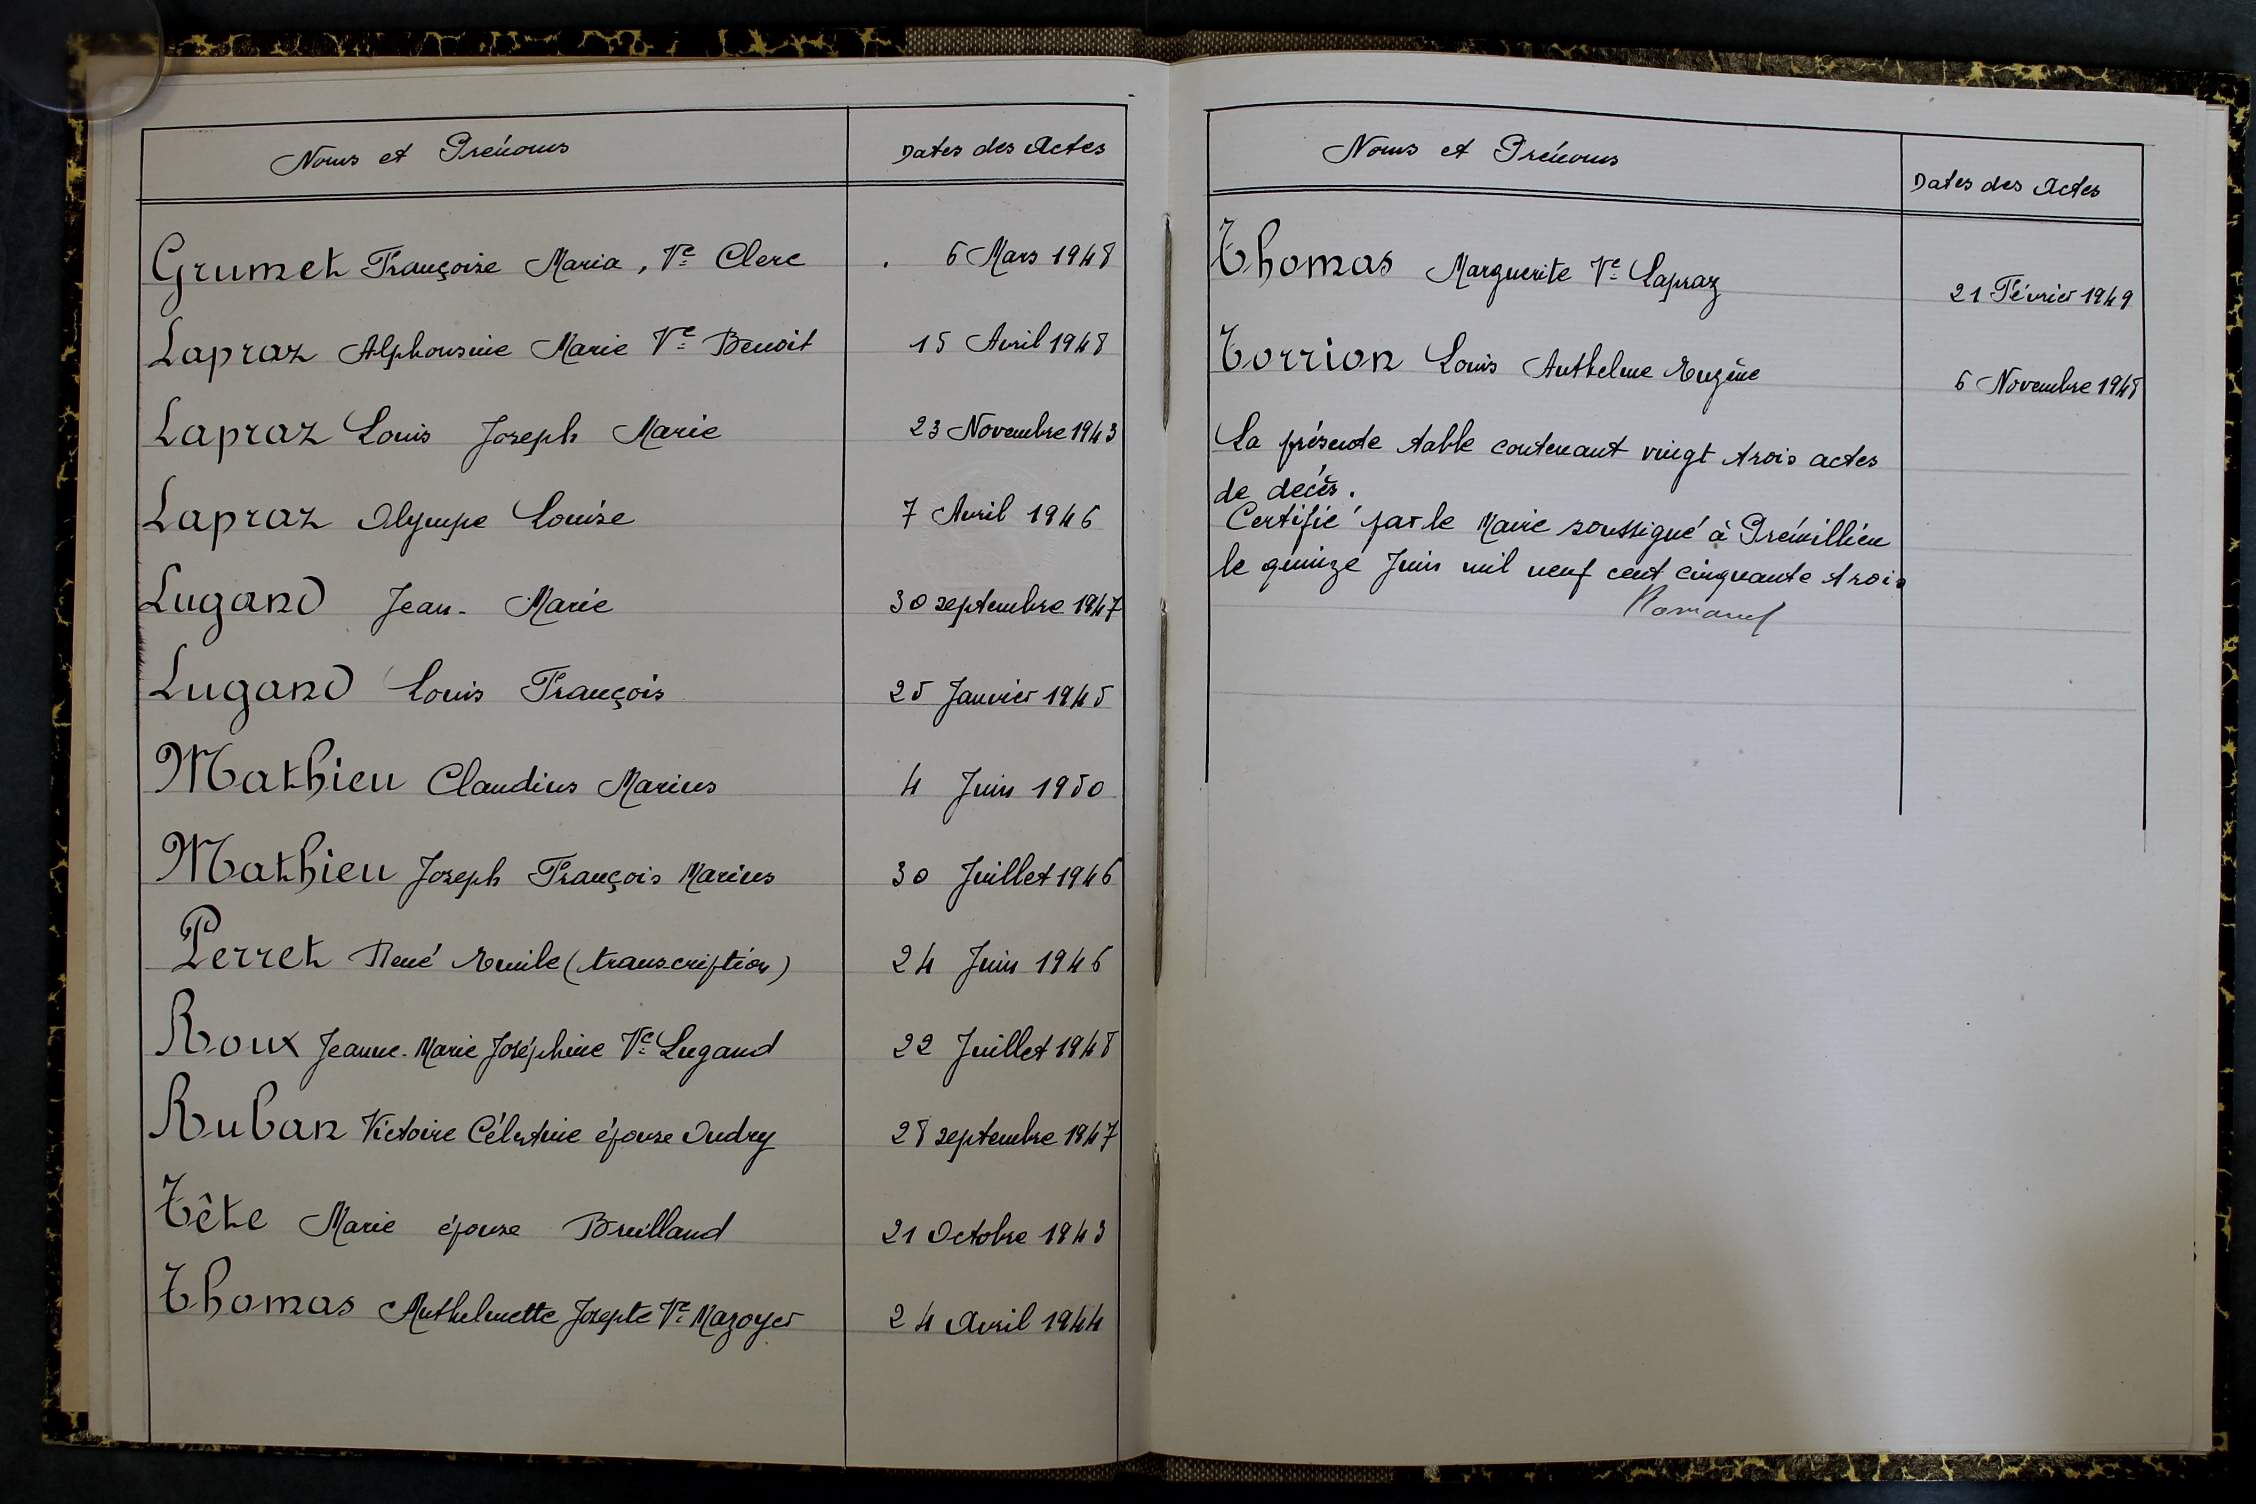 Noms et Prénoms Dates des Actes
Grumet Françoise Maria, Ve Clerc 6 Mars 1948
Lapraz Alphonsine Marie Ve Benoit 15 Avril 1948
Lapraz Louis Joseph Marie 23 Novembre 1943
Lapraz Olympe Louise 7 Avril 1946
Lugand Jean-Marie 30 septembre 1947
Lugand Louis François 25 Janvier 1945
Mathieu Claudius Marius 4 Juin 1950
Mathieu Joseph François Marius 30 Juillet 1946
Perret René Emile (transcription) 24 Juin 1946
Roux Jeanne-Marie Joséphine Ve Lugand 22 Juillet 1948
Ruban Victoire Célestine épouse Oudry 28 septembre 1947
Tête Marie épouse Bruilland 21 Octobre 1943
Thomas Anthelmette Josepte Ve Mazoyer 24 Avril 1944
Noms et Prénoms Dates des Actes
Thomas Marguerite Ve Lapraz 21 Février 1949
Torrion Louis Anthelme Eugène 6 Novembre 1948
La présente table contenant vingt trois actes
de décès.
Certifié par le Maire soussigné à Prémillieu
le quinze Juin mil neuf cent cinquante trois